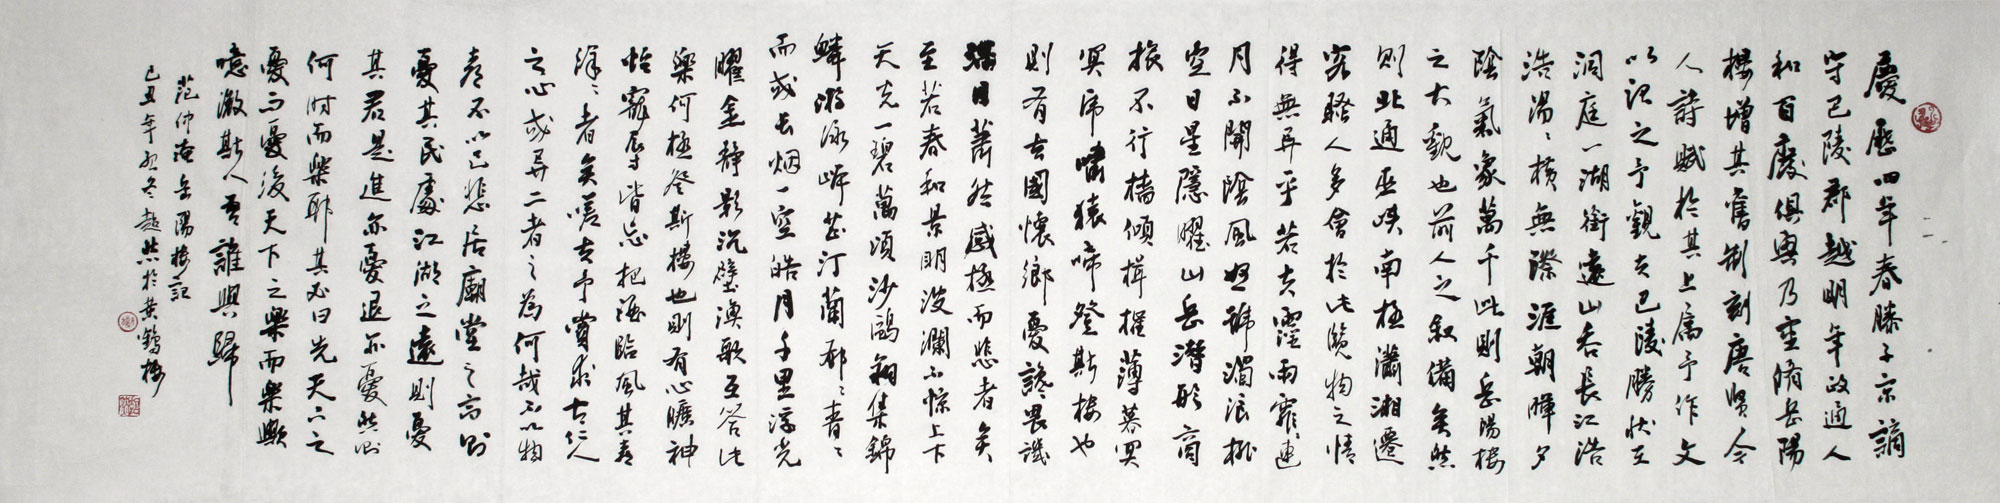 慶歷四年春滕子京謫
守巴陵郡越明年政通人
和百廢俱興乃重脩岳陽
樓增其舊制刻唐賢今
人詩賦於其上屬予作文
以記之予觀夫巴陵勝狀在
洞庭一湖銜遠山吞長江浩
浩湯〻橫無際涯朝暉夕
陰氣象萬千此則岳陽樓
之大觀也前人之敘備矣然
則北通巫峽南極瀟湘遷
客騷人多會於此覽物之情
得無異乎若夫霪雨霏〻連
月不開陰風怒號濁浪排
空日星隱曜山岳潛形商
旅不行檣傾楫摧薄暮冥
冥虎嘯猿啼登斯樓也
則有去國懷鄉憂讒畏譏
滿目蕭然感極而悲者矣
至若春和景明波瀾不驚上下
天光一碧萬頃沙鷗翔集錦
鱗游泳岸芷汀蘭郁〻青〻
而或長烟一空皓月千里浮光
曜金靜影沉璧漁歌互答此
樂何極登斯樓也則有心曠神
怡寵辱皆忘把酒臨風其喜
洋〻者矣嗟夫予嘗求古仁人
之心或異二者之為何哉不以物
喜不以己悲居廟堂之高則
憂其民處江湖之遠則憂
其君是進亦憂退亦憂然則
何時而樂耶其必曰先天下之
憂而憂後天下之樂而樂歟
噫微斯人吾誰與歸
范仲淹岳陽樓記
己丑年初冬 於黃鶴樓